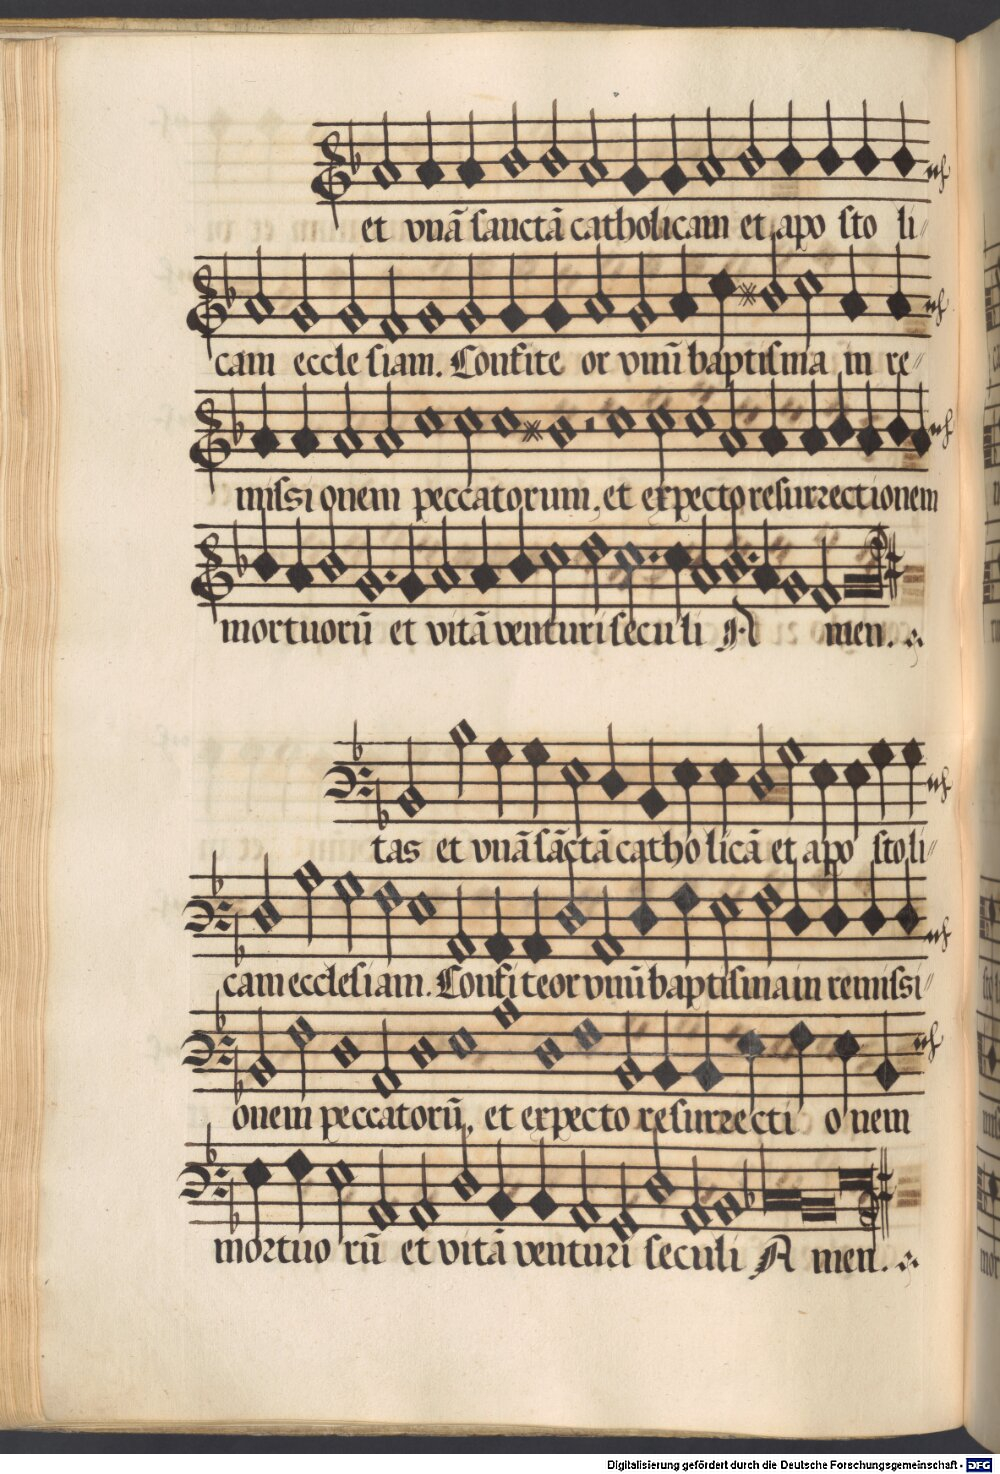 et vnā sanctā catholicam et apo sto li〃
cam eccle siam. Confite or vnū baptisma in re〃
missi onem peccatorum, et expecto resurrectionem
mortuorū et vitā venturi seculi A men.
tas et vnā sāctā catho licā et apo stoli〃
cam ecclesiam. Confiteor vnū baptisma in remissi〃
onem peccatorū, et expecto resurrecti onem
mortuo rū et vitā venturi seculi A men.
Digitalisierung gefördert durch die Deutsche Forschungsgemeinschaft - DFG